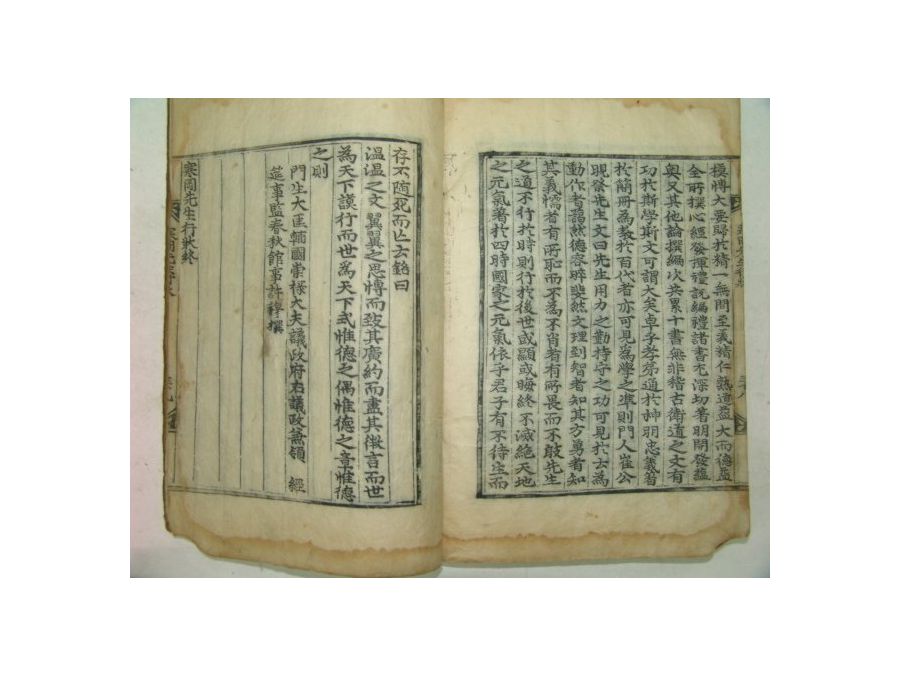 極博大要歸於精一無間至義精仁熟道益大而德益
全所撰心經發揮禮說編禮諸書尤深切著明開發蘊
奧又其他論撰編次共累十書無非稽古衛道之文有
功於斯學斯文可謂大矣卓乎孝弟通於神明忠義著
於簡冊為教於百代者亦可見為學之準則門人崔公
晛祭先生文曰先生用力之勤持守之功可見於云為
動作者藹然德容睟斐然文理到智者知其方勇者知
其義懦者有所恥而不為不肖者有所畏而不敢先生
之道不行於時則行於後世或顯或晦終不滅絕天地
之元氣著於四時國家之元氣依乎君子有不待生而
存不隨死而亡云銘曰
溫溫之文翼翼之思博而致其廣約而盡其微言而世
為天下謨行而世為天下式惟德之偶惟德之章惟德
之則
門生大匡輔國崇祿大夫議政府右議政兼領 經
筵事監春秋館事許穆撰
寒岡先生行狀終